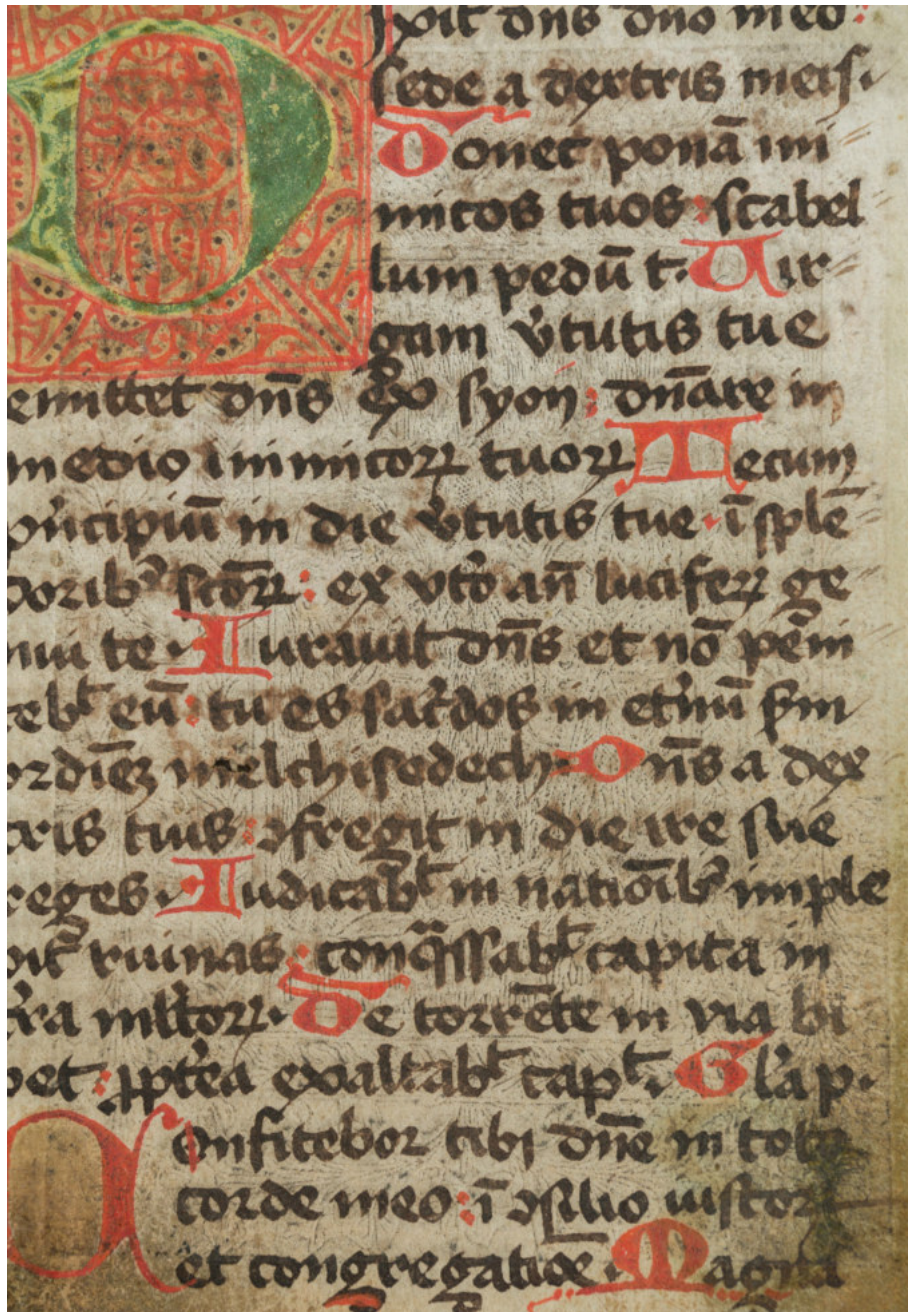 Dixit dn̄s dn̄o meo:
sede a dextris meis.
Donec ponā ini
micos tuos: scabel
lum pedū t. Uir
gam v̓tutis tue
emittet dn̄s ex syon: dn̄are in
medio inimicoꝝ tuoꝝ Tecum
pⁱncipiū in die v̓tutis tue. ī splē
doribꝰ sc̄oꝝ: ex vt̓o an̄ lucifeꝝ ge
nui te. Iurauit dn̄s et nō pēni
teb̄t eū: tu es sac̓dos in et̓nū sc̄dm
ordīeꝫ melchisedech. Dn̄s a dex
tris tuis: ꝯfregit in die ire sue
reges. Iudicab̄t in natiōibꝰ imple
bit ruinas: conqᷓssab̄t capita in
t̓ra ml̄toꝝ. De torrēte in via bi
bet: ꝓpt̓ea exaltab̄t cap̄t. Gl̓ia p.
Confitebor tibi dn̄e in toto
corde meo: ī ꝯsilio iustoꝝ
et congregatiōe. Magna